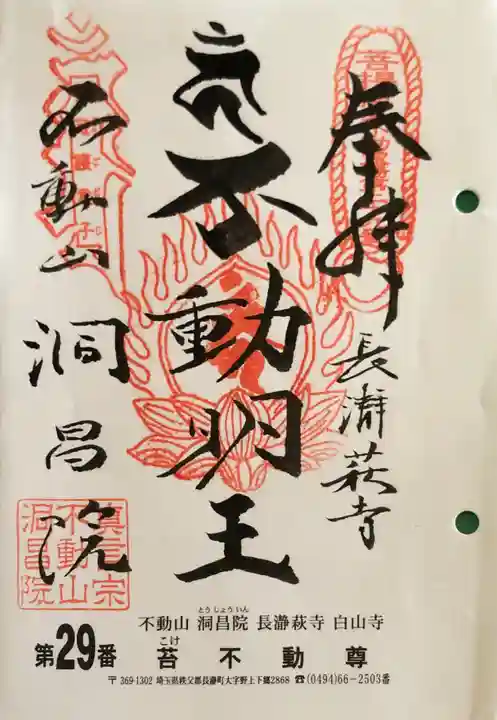 奉拝
長瀞萩寺
不動明王
不動山
洞昌院
真言宗
不動山
洞昌院
不動山 洞昌院 長瀞萩寺 白山寺
とうしょういん
第29番
苔不動尊
こけ
〒369-1302 埼玉県秩父郡長瀞町大字野上下郷2868 ☎(0494)66-2503番